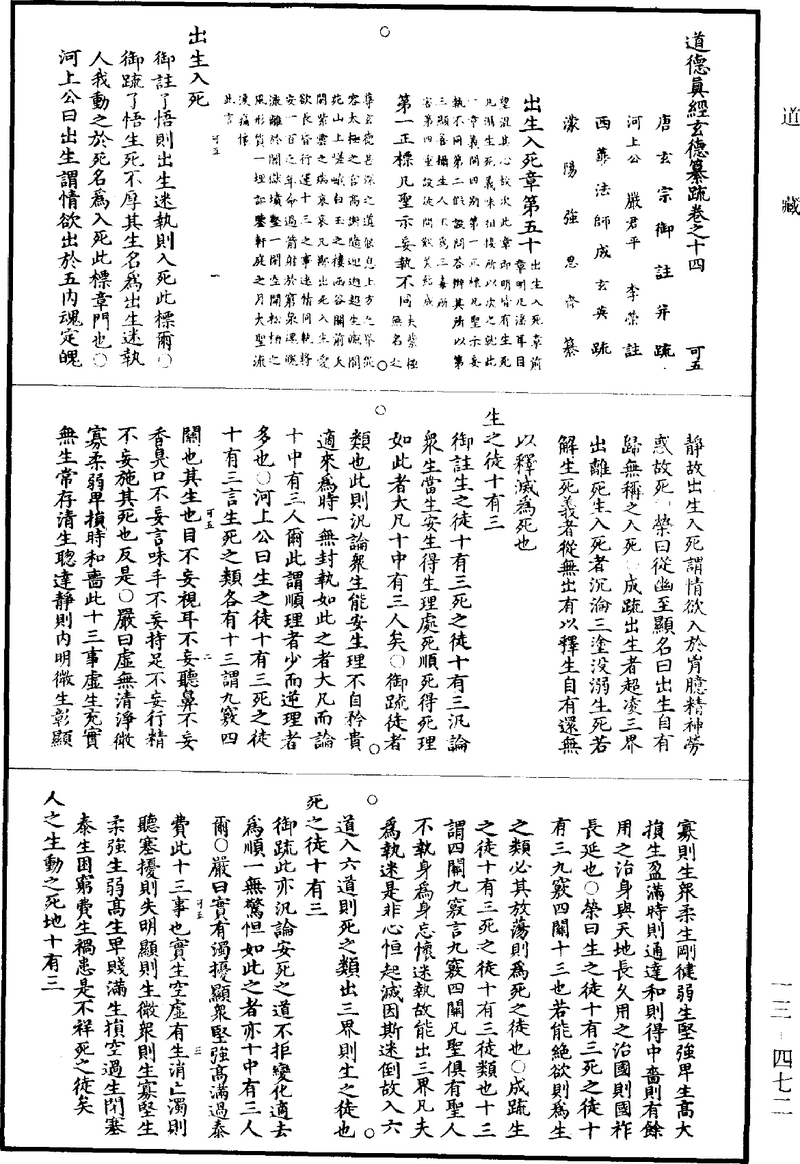 道藏
一三—四七二
道德眞經玄德纂疏卷之十四　可五
唐玄宗御註并疏
河上公　嚴君平　李榮註
西華法師成玄英疏
濛陽強思齊纂
出生入死章第五十
第一正標凡聖示妄執不同
出生入死
御註了悟則出生迷執則入死此標爾○
御疏了悟生死不厚其生名爲出生迷執
人我動之於死名爲入死此標章門也○
河上公曰出生謂情欲出於五内魂定魄
靜故出生入死謂情欲入於胷臆精神勞
惑故死○榮曰從幽至顯名曰出生自有
歸無稱之入死○成疏出生者超凌三界
出離死生入死者沉淪三塗没溺生死若
解生死義者從無出有以釋生自有還無
以釋滅爲死也
生之徒十有三
御註生之徒十有三死之徒十有三汎論
衆生當生安生得生理處死順死得死理
如此者大凡十中有三人矣○御疏徒者
類也此則汎論衆生能安生理不自矜貴
適來爲時一無封執如此之者大凡而論
十中有三人爾此謂順理者少而逆理者
多也○河上公曰生之徒十有三死之徒
十有三言生死之類各有十三謂九竅四
關也其生也目不妄視耳不妄聽鼻不妄
香臭口不妄言味手不妄持足不妄行精
不妄施其死也反是○嚴曰虛無清淨微
寡柔弱卑損時和嗇此十三事虛生充實
無生常存清生聰達靜則内明微生彰顯
寡則生衆柔生剛健弱生堅強卑生高大
損生盈滿時則通達和則得中嗇則有餘
用之治身與天地長久用之治國則國祚
長延也○榮曰生之徒十有三死之徒十
有三九竅四關十三也若能絶欲則爲生
之類必其放蕩則爲死之徒也○成疏生
之徒十有三死之徒十有三徒類也十三
謂四關九竅言九竅四關凡聖俱有聖人
不執身爲身忘懷迷執故能出三界凡夫
爲執迷是非心恒起滅因斯迷倒故入六
道入六道則死之類出三界則生之徒也
死之徒十有三
御疏此亦汎論安死之道不拒變化適去
爲順一無驚怛如此之者亦十中有三人
爾○嚴曰實有濁擾顯衆堅強高滿過泰
費此十三事也實生空虛有生消亡濁則
聽塞擾則失明顯則生微衆則生寡堅生
柔強生弱高生卑賤滿生損空過生閉塞
泰生困窮費生禍患是不祥死之徒矣
人之生動之死地十有三